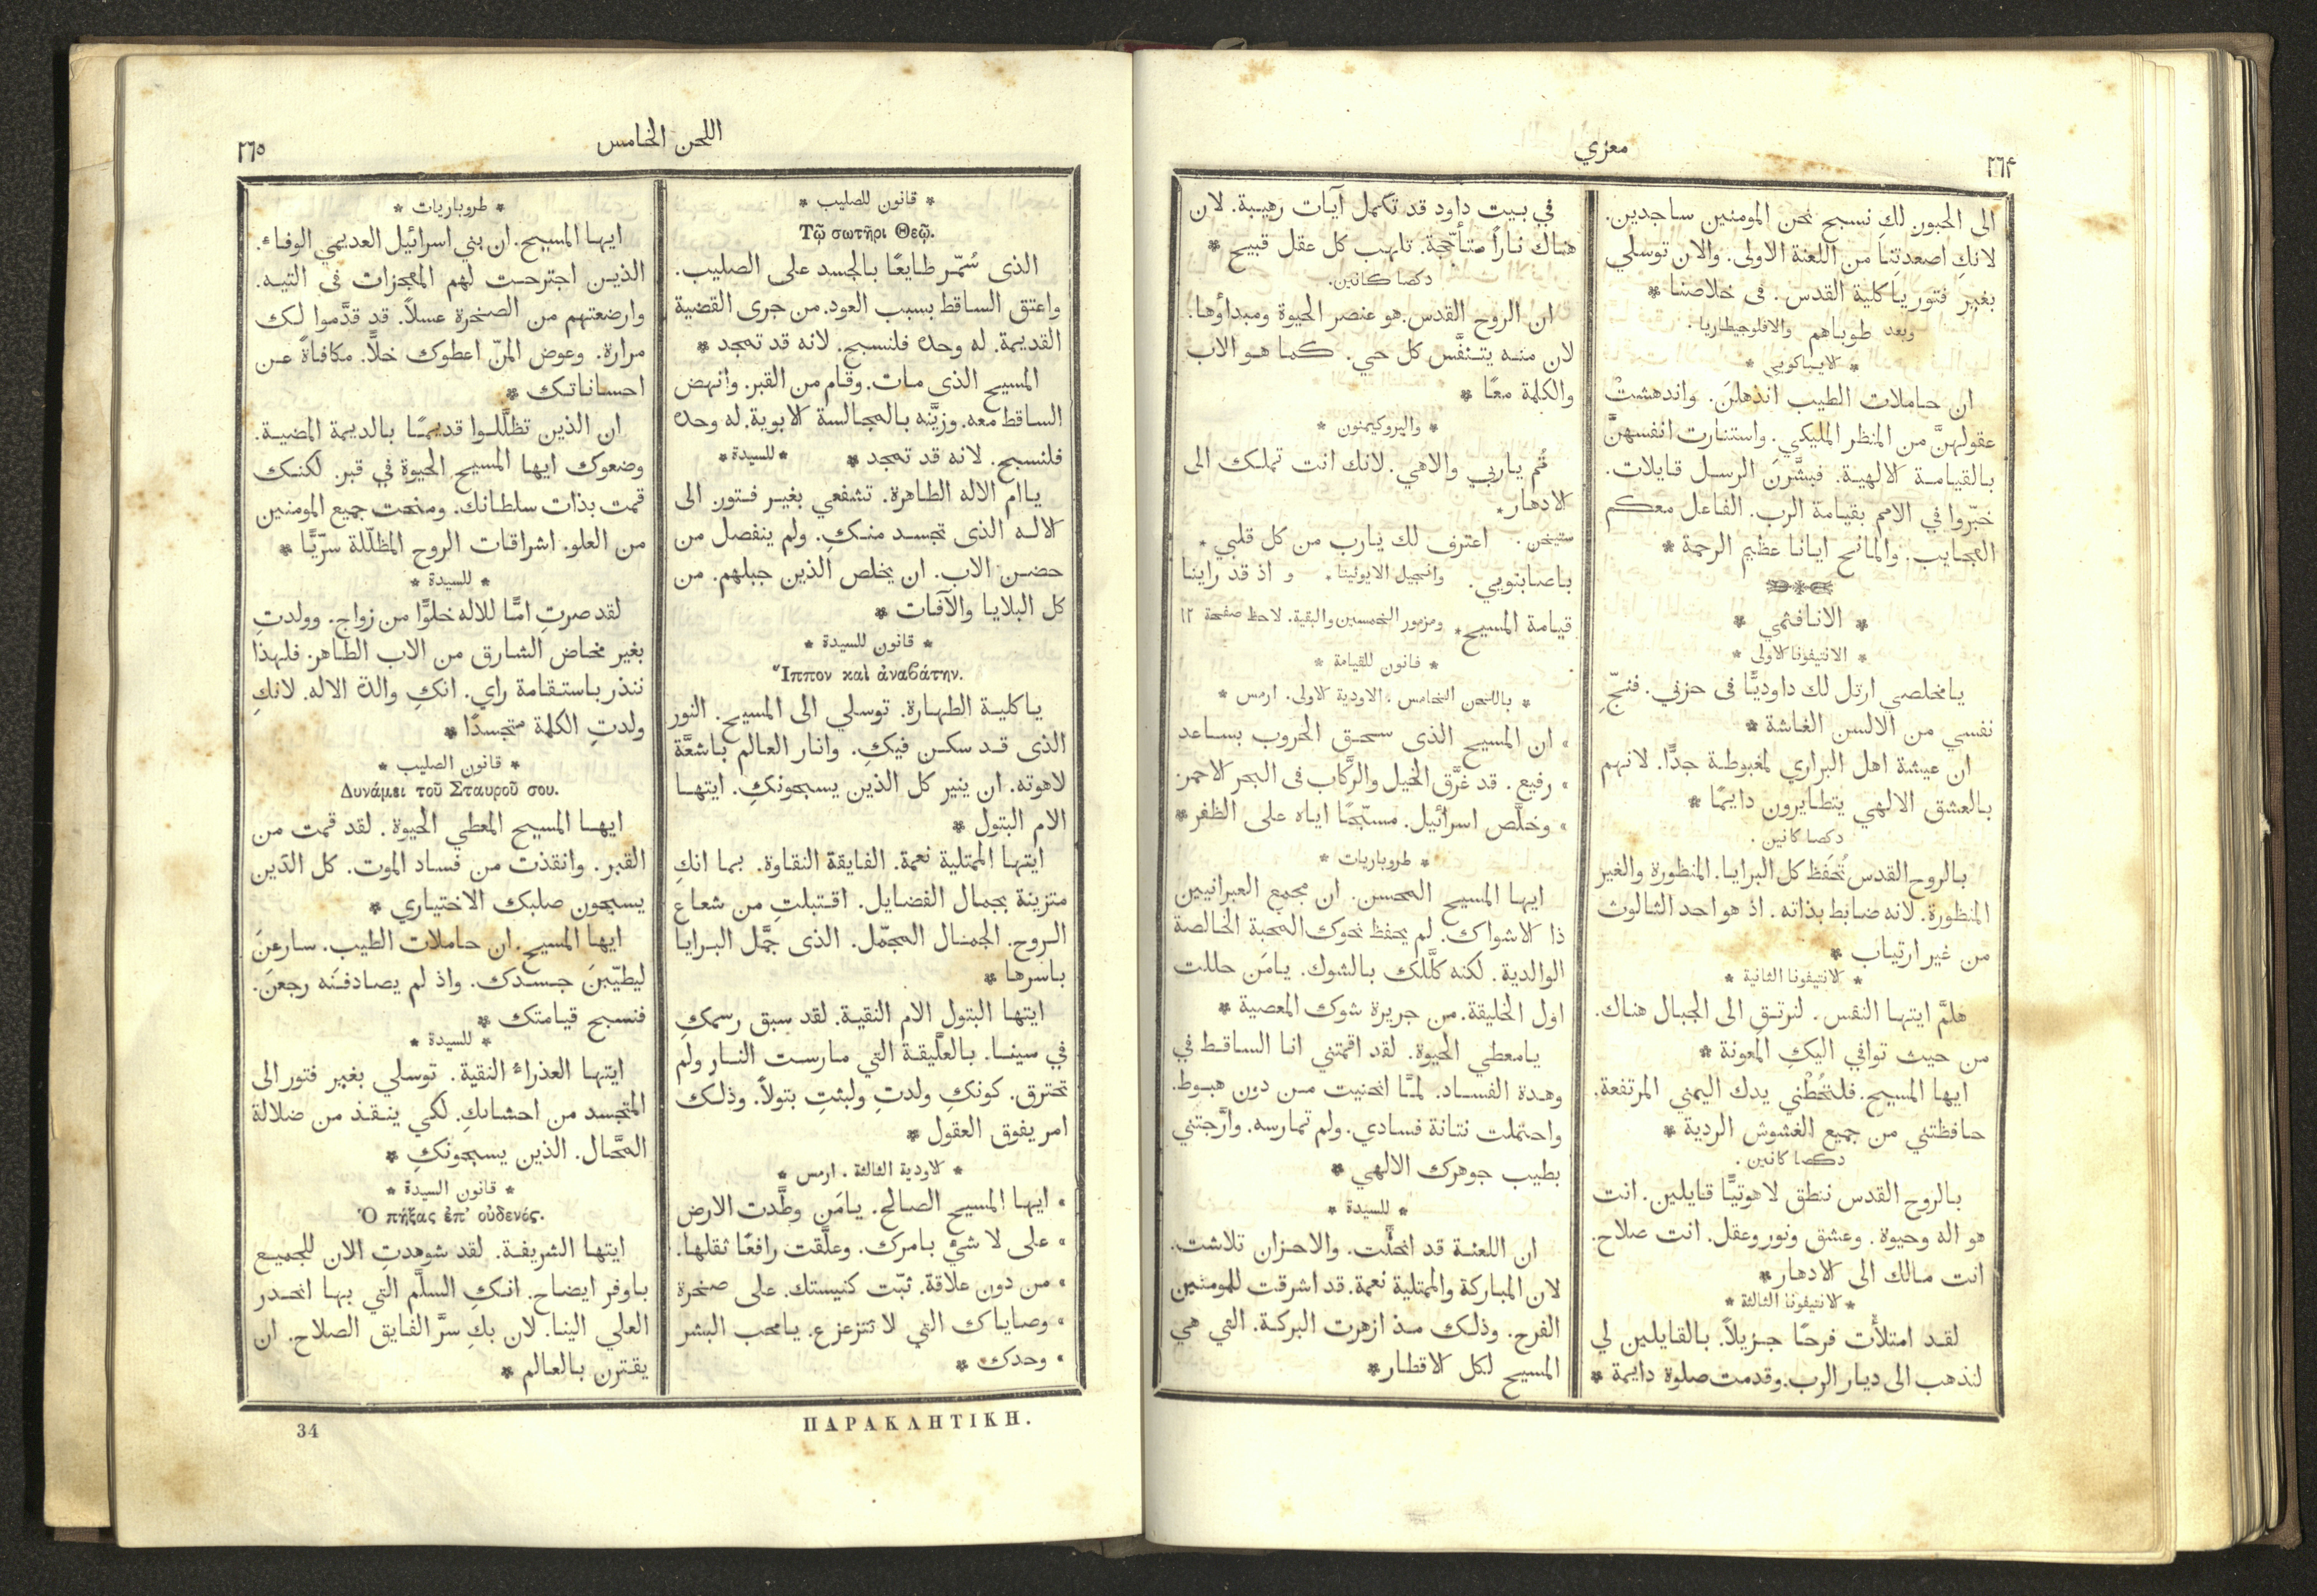 معزي
٢٦٤
الى الحبون لكِ نسبح نحن المومنين ساجدين.
لانكِ اصعدتِنا من اللعنة الاولى. والان توسلي
بغير فتور ياكلية القدس. فى خلاصنا *
وبعد طوباهم والافلوجيطاريا.
* لايباكويي *
ان حاملات الطيب انذهلنَ. واندهشتْ
عقولهنَّ من المنظر المليكي. واستنارت انفسهنَّ
بالقيامة الالهية. فبشَّرنَ الرسل قايلات.
خبّروا في الامم بقيامة الرب. الفاعل معكم
العجايب. والمانح ايانا عظيم الرحمة *
* الانافثمي *
* الانتيفونا الاولى *
يامخلصي ارتل لك داوديًّا فى حزني. فنجّ
نفسي من الالسن الغاشة *
ان عيشة اهل البراري لمغبوطة جدًّا. لانهم
بالعشق الالهي يتطايرون دايمًا *
دكصا كانين.
بالروح القدس تُحفَظ كل البرايا. المنظورة والغير
المنظورة. لانه ضابط بذاته. اذ هو احد الثالوث
من غير ارتياب *
* الانتيفونا الثانية *
هلمَّ ايتها النفس. لنرتقِ الى الجبال هناك.
من حيث توافي اليكِ المعونة *
ايها المسيح. فلتحُطْني يدك اليمني المرتفعة.
حافظتني من جميع الغشوش الردية *
دكصا كانين.
بالروح القدس ننطق لاهوتيًّا قايلين. انت
هو اله وحيوة. وعشق ونور وعقل. انت صلاح.
انت مالك الى الادهار *
* الانتيفونا الثالثة *
لقد امتلأت فرحًا جزيلًا. بالقايلين لي
لنذهب الى ديار الرب. وقدمت صلوة دايمة *
في بيت داود قد تكمل آيات رهيبة. لان
هناك نارًا متأجّجة. تلهب كل عقل قبيح *
دكصا كانين.
ان الروح القدس. هو عنصر الحيوة ومبداؤها.
لان منه يتنفَّس كل حي. كما هو الاب
والكلمة معًا *
* والپروكيمنون *
قُم ياربي والاهي. لانك انت تملك الى
الادهار *
ستيخن. اعترف لك يارب من كل قلبي *
باصابنويي. وانجيل الايوثينا. و اذ قد راينا
قيامة المسيح * ومزمور الخمسين والبقية. لاحظ صفحة ١٢
* قانون للقيامة *
* باللحن الخامس. الاودية الاولى. ارمس *
» ان المسيح الذى سحق الحروب بساعد
» رفيع. قد غرَّق الخيل والرّكَّاب فى البحر الاحمر.
» وخلَّص اسرائيل. مسبّحًا اياه على الظفر *
* طروباريات *
ايها المسيح المحسن. ان مجمع العبرانيين
ذا الاشواك. لم يحفظ نحوك المحبة الخالصة
الوالدية. لكنه كلَّلك بالشوك. يامَن حللت
اول الخليقة. من جريرة شوك المعصية *
يامعطي الحيوة. لقد اقمتني انا الساقط في
وهدة الفساد. لمَّا انحنيت من دون هبوط.
واحتملت نتانة فسادي. ولم تمارسه. وارَّجتني
بطيب جوهرك الالهي *
* للسيدة *
ان اللعنة قد انحلَّت. والاحزان تلاشت.
لان المباركة والممتلية نعمة. قد اشرقت للمومنين
الفرح. وذلك مذ ازهرت البركة. التي هي
المسيح لكل الاقطار *
اللحن الخامس
٢٦٥
* قانون للصليب *
Τῷ σωτῆρι Θεῷ.
الذى سُمّر طايعًا بالجسد على الصليب.
واعتق الساقط بسبب العود. من جرى القضية
القديمة. له وحده فلنسبح. لانه قد تمجد *
المسيح الذى مات. وقام من القبر. وانهض
الساقط معه. وزيَّنه بالمجالسة الابوية. له وحده
فلنسبح. لانه قد تمجد * * للسيدة *
ياام الاله الطاهرة. تشفعي بغير فتور الى
الاله الذى تجسد منكِ. ولم ينفصل من
حضن الاب. ان يخلص الذين جبلهم. من
كل البلايا والآفات *
* قانون للسيدة *
Ἵππον καὶ ἀναβάτην.
ياكلية الطهارة. توسلي الى المسيح. النور
الذى قد سكن فيكِ. وانار العالم باشعَّة
لاهوته. ان ينير كل الذين يسبحونكِ. ايتها
الام البتول *
ايتها الممتلية نعمة. الفايقة النقاوة. بما انكِ
متزينة بجمال الفضايل. اقتبلتِ من شعاع
الروح. الجمال المجمّل. الذى جمَّل البرايا
باسرها *
ايتها البتول الام النقية. لقد سبق رسمكِ
في سينا. بالعلَّيقة التي مارست النار ولم
تحترق. كونكِ ولدتِ ولبثتِ بتولًا. وذلك
امر يفوق العقول *
* الاودية الثالثة. ارمس *
» ايها المسيح الصالح. يامَن وطَّدت الارض
» على لا شيْ بامرك. وعلَّقت رافعًا ثقلها.
» من دون علاقة. ثبّت كنيستك. على صخرة
» وصاياك التي لا تتزعزع. يامحب البشر
» وحدك *
* طروباريات *
ايها المسيح. ان بني اسرائيل العديمي الوفاء.
الذين اجترحت لهم المعجزات فى التيه.
وارضعتهم من الصخرة عسلًا. قد قدَّموا لك
مرارة. وعوض المنّ اعطوك خلًّا. مكافاةً عن
احساناتك *
ان الذين تظلَّلوا قديمًا بالديمة المضية.
وضعوك ايها المسيح الحيوة في قبر. لكنك
قمت بذات سلطانك. ومنحت جميع المومنين
من العلو. اشراقات الروح المظلّلة سرّيًّا *
* للسيدة *
لقد صرتِ امًّا للاله خلوًّا من زواج. وولدتِ
بغير مخاض الشارق من الاب الطاهر. فلهذا
ننذر باستقامة راي. انكِ والدة الاله. لانكِ
ولدتِ الكلمة متجسدًا *
* قانون الصليب *
Δυνάμει τοῦ Σταυροῦ σου.
ايها المسيح المعطي الحيوة. لقد قمت من
القبر. وانقذت من فساد الموت. كل الذين
يسبحون صلبك الاختياري *
ايها المسيح. ان حاملات الطيب. سارعنَ
ليطيّبنَ جسدك. واذ لم يصادفنَه رجعنَ.
فنسبح قيامتك *
* للسيدة *
ايتها العذراءُ النقية. توسلي بغير فتور الى
المتجسد من احشاىكِ. لكي ينقذ من ضلالة
المحَّال. الذين يسبحونكِ *
* قانون السيدة *
Ὁ πήξας ἐπ' οὐδενός.
ايتها الشريفة. لقد شوهدتِ الان للجميع
باوفر ايضاح. انكِ السلَّم التي بها انحدر
العلي الينا. لان بكِ سرَّ الفايق الصلاح. ان
يقترن بالعالم *
ΠΑΡΑΚΛΗΤΙΚΗ.
34